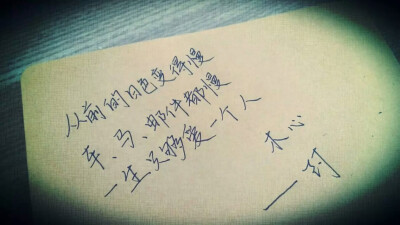 从前的日色变得慢
车、马、邮件都慢
一生只够爱一个人
木心
一封